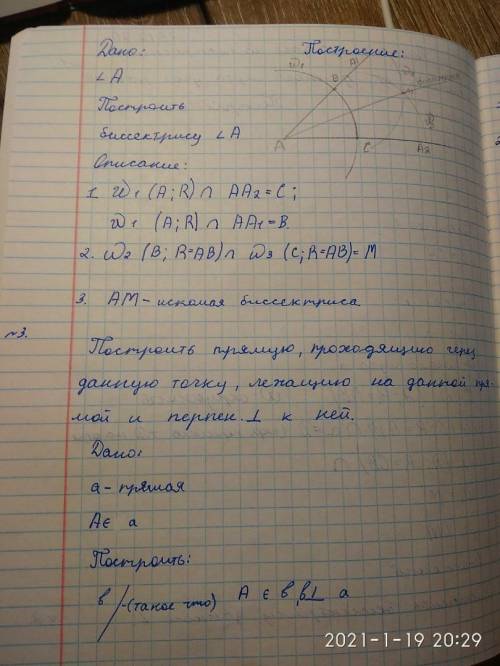 Дано: Построение:
∠A
Построить
биссектрису ∠A
Описание:
1. ω₁ (A; R) ∩ AA₂ = C;
ω₁ (A; R) ∩ AA₁ = B.
2. ω₂ (B; R=AB) ∩ ω₃ (C; R=AB) = M
3. AM - искомая биссектриса
ω₁ B A₁
A C A₂
№3.
Построить прямую, проходящию через
данную точку, лежащию на данной пря-
мой и перпен. ⊥ к ней.
Дано:
a - прямая
A ∈ a
Построить:
в /-(такое что) A ∈ в, в ⊥ a
2021-1-19 20:29